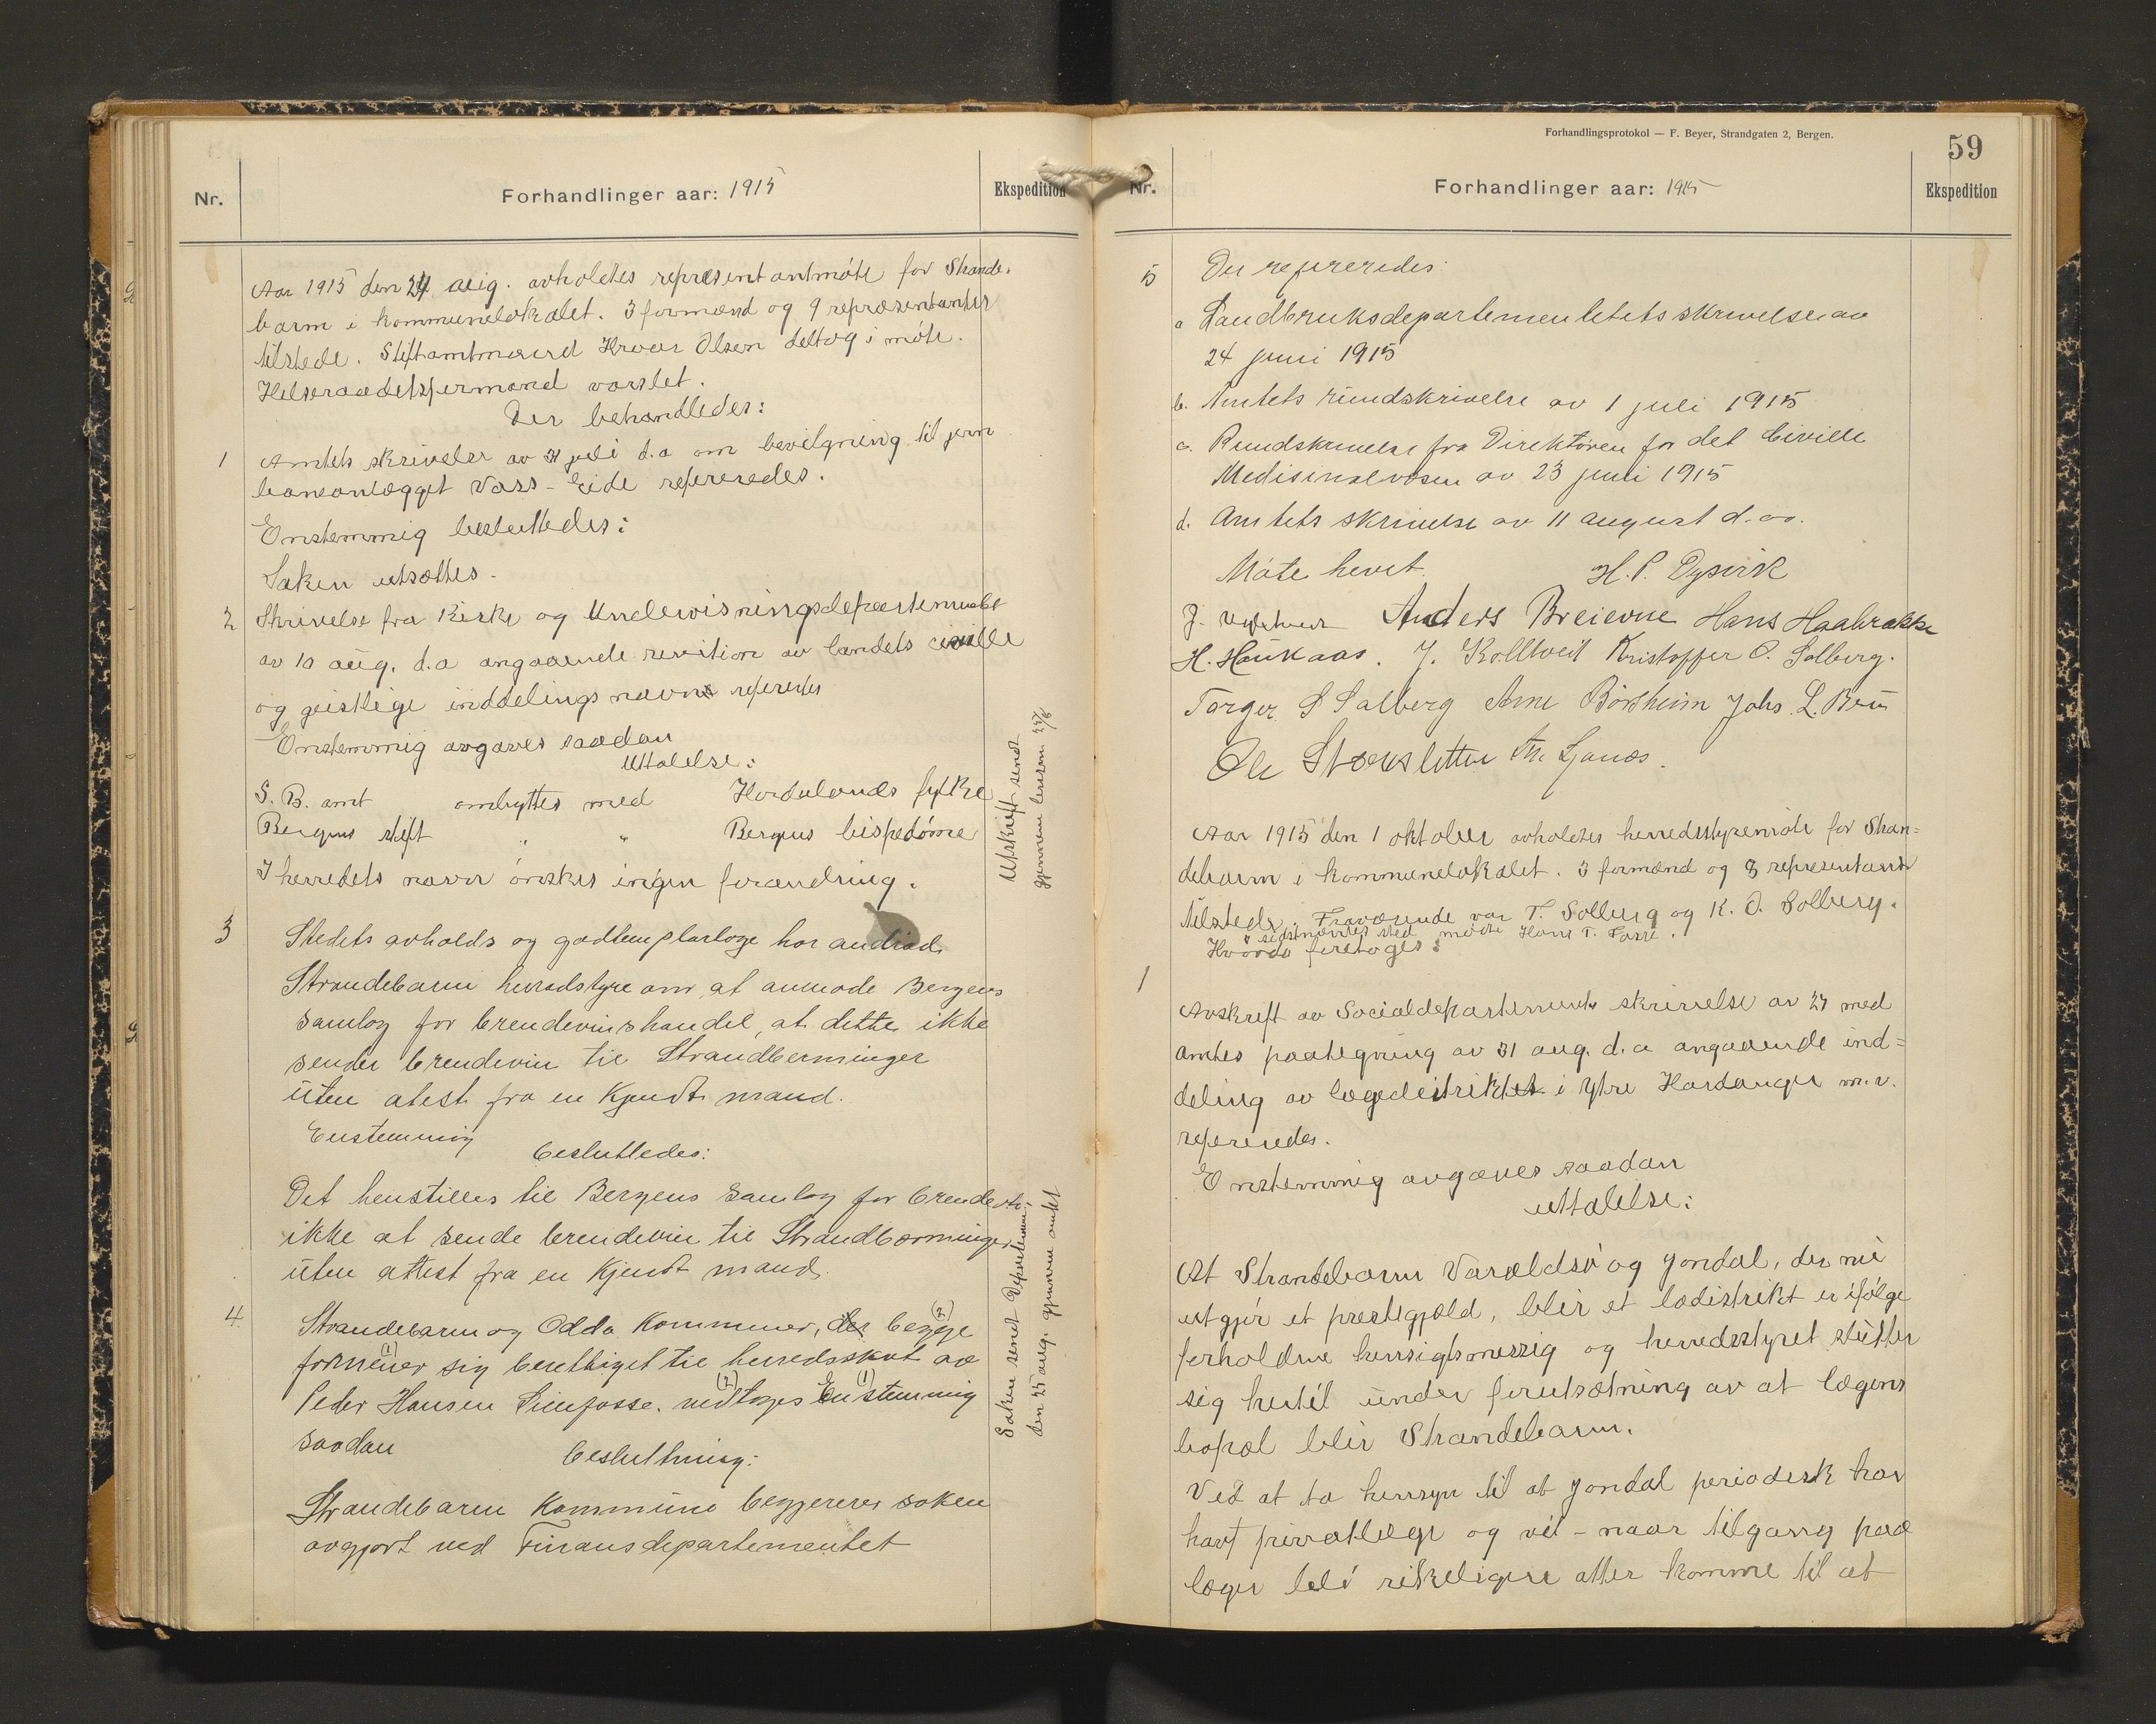 Nr.
Forhandlinger aar: 1915
Ekspedition
Aar 1915 den 24 aug. avholdtes representantmøte for Strande-
barm i kommunelokalet. 3 formænd og 9 repræsentanter
tilstede. Stiftamtmand Hroar Olsen deltog i møte.
Helseraadetsformand varslet.
Der behandledes:
1
Amtets skrivelse av 31 juli d.a om bevilgning til jern
baneanlægget Vass-Eide refereredes.
Enstemmig besluttedes:
Saken utsættes.
2
Skrivelse fra Kirke og Undervisningsdepartementet
av 10 aug. d.a angaaende revition av landets civille
og geistlige inddelings navne refertes
Enstemmig avgaves saadan
uttalelse:
S. B. amt ombyttes med Hordalands fylke
Bergens stift " " Bergens bispedøme
I herredets navn ønskes ingen forandring.
Utskrift sendt
gjennem lensm 25/8
3
Stedets avholds og godtemplarloge har andrad
Strandebarm herredstyre om at anmode Bergens
samlag for brendevinshandel, at dette ikke
sender brendevin til Strandberminger
uten atest fra en kjendt mand.
Enstemmig
besluttedes:
Det henstilles til Bergens Samlag for brendevin
ikke at sende brendevin til Strandbarminger
uten attest fra en kjendt mand.
4
Strandebarm og Odda Kommuner, der begge (2)
formener (1) sig berettiget til herredsskat av
Peder Hansen Linfosse. vedtoges (2) Enstemmig (1)
saadan
beslutning:
Strandebarm Kommune begjærer saken
avgjort ved Finansdepartementet
Saken sendt Departemen.
den 25 aug. gjennem amtet
Forhandlingsprotokol — F. Beyer, Strandgaten 2, Bergen.
59
Nr.
Forhandlinger aar: 1915
Ekspedition
5
Der refereredes:
a Landbruksdepartementetets skrivelse av
24 juni 1915
b. Amtets rundskrivelse av 1 juli 1915
c. Rundskrivelse fra Direktøren for det Civille
Medisinalvæsen av 23 juni 1915
d. Amtets skrivelse av 11 august d.a.
Møte hevet. H. P. Dysvik
J. Anders Breievne Hans Haabrække
H. Haukaas. J. Kolltveit Kristoffer O. Solberg.
Torger S Salberg Arne Børsheim Johs. L. Bru
Ole Storesletten
Aar 1915 den 1 oktober avholdtes herredsstyremøte for Stran=
debarm i kommunelokalet. 3 formænd og 8 representanter
tilstede. Fraværende var T. Solberg og K. O. Solberg.
I sidstnævntes sted møtte Hans T. Fosse.
Hvorda foretoges:
1
Avskrift av Socialdepartements skrivelse av 27 med
amtes paategning av 31 aug. d.a angaaende ind=
deling av lægedistriktet i Ytre Hardanger m.v.
refereredes.
Enstemmig avgaves saadan
uttalelse:
At Strandebarm Varaldsø og Jondal, der nu
utgjør et prestegjæld, blir et lædistrikt er ifølge
forholdene hensigtsmessig og herredsstyret slutter
sig hertil under forutsætning av at lægens
bopæl blir Strandebarm.
Ved at ta hensyn til at Jondal periodisk har
havt privatlæge og vil - naar tilgang paa
læger blir rikeligere atter komme til at